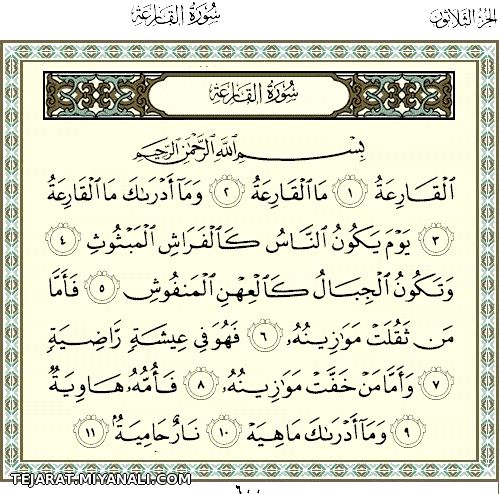 سُورَةُ القَارِعَةِ الجُزْءُ الثَّلَاثُونَ
سُورَةُ القَارِعَةِ
بِسْمِ ٱللَّهِ ٱلرَّحْمَٰنِ ٱلرَّحِيمِ
ٱلْقَارِعَةُ ١ مَا ٱلْقَارِعَةُ ٢ وَمَآ أَدْرَىٰكَ مَا ٱلْقَارِعَةُ
٣ يَوْمَ يَكُونُ ٱلنَّاسُ كَٱلْفَرَاشِ ٱلْمَبْثُوثِ ٤
وَتَكُونُ ٱلْجِبَالُ كَٱلْعِهْنِ ٱلْمَنفُوشِ ٥ فَأَمَّا
مَن ثَقُلَتْ مَوَٰزِينُهُۥ ٦ فَهُوَ فِى عِيشَةٍ رَّاضِيَةٍ
٧ وَأَمَّا مَنْ خَفَّتْ مَوَٰزِينُهُۥ ٨ فَأُمُّهُۥ هَاوِيَةٌ
٩ وَمَآ أَدْرَىٰكَ مَا هِيَهْ ١٠ نَارٌ حَامِيَةٌۢ ١١
TEJARAT.MIYANALI.COM
٦٠٠